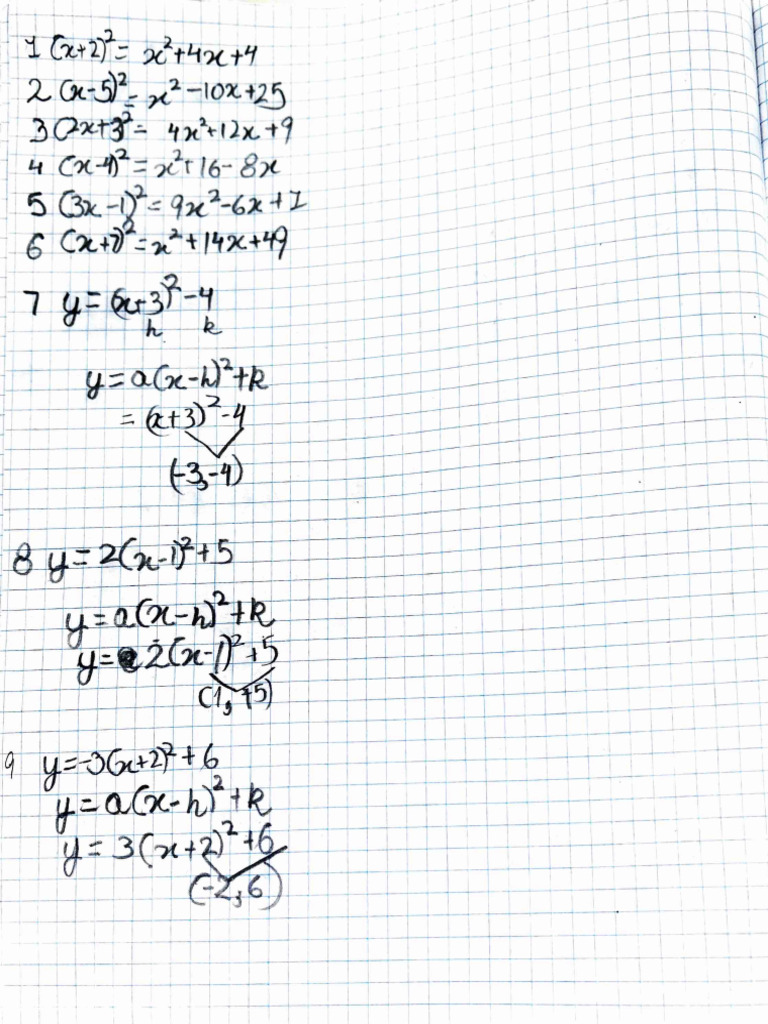 1 (x+2)² = x²+4x+4
2 (x-5)² = x²-10x+25
3 (2x+3)² = 4x²+12x+9
4 (x-4)² = x²+16-8x
5 (3x-1)² = 9x²-6x+1
6 (x+7)² = x²+14x+49
7 y = (x+3)²-4
h k
y = a(x-h)²+k
= (x+3)²-4
(-3,-4)
8 y = 2(x-1)²+5
y = a(x-h)²+k
y = 2(x-1)²+5
(1, +5)
9 y=-3(x+2)²+6
y = a(x-h)²+k
y = 3(x+2)²+6
(-2,6)